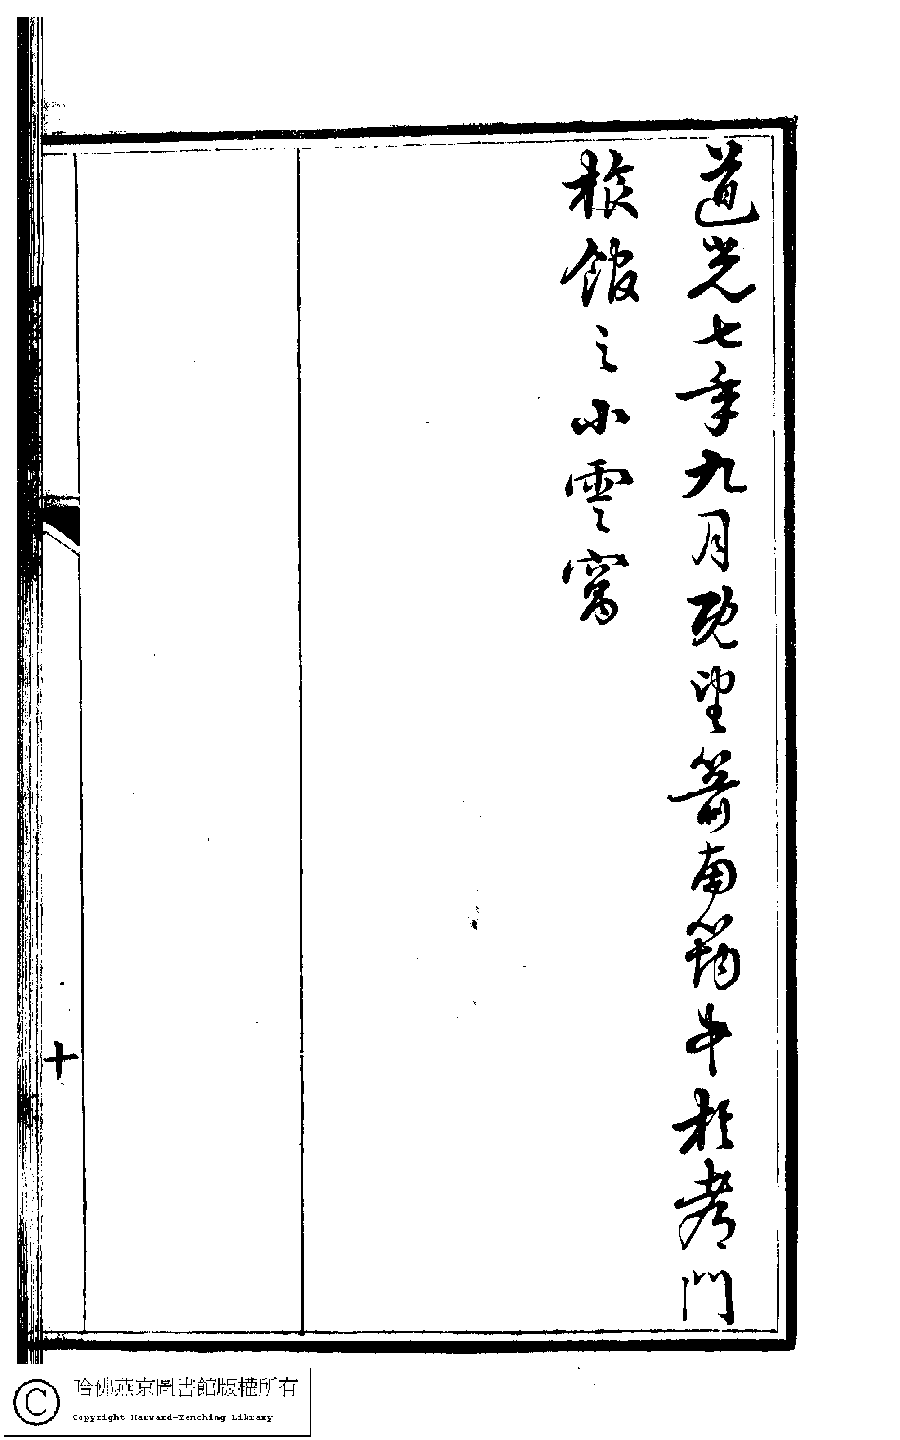 道光七年九月既望南筠於門
旅館之小雲窩
十
哈佛燕京圖書館版權所有
Copyright Harvard-Yenching Library